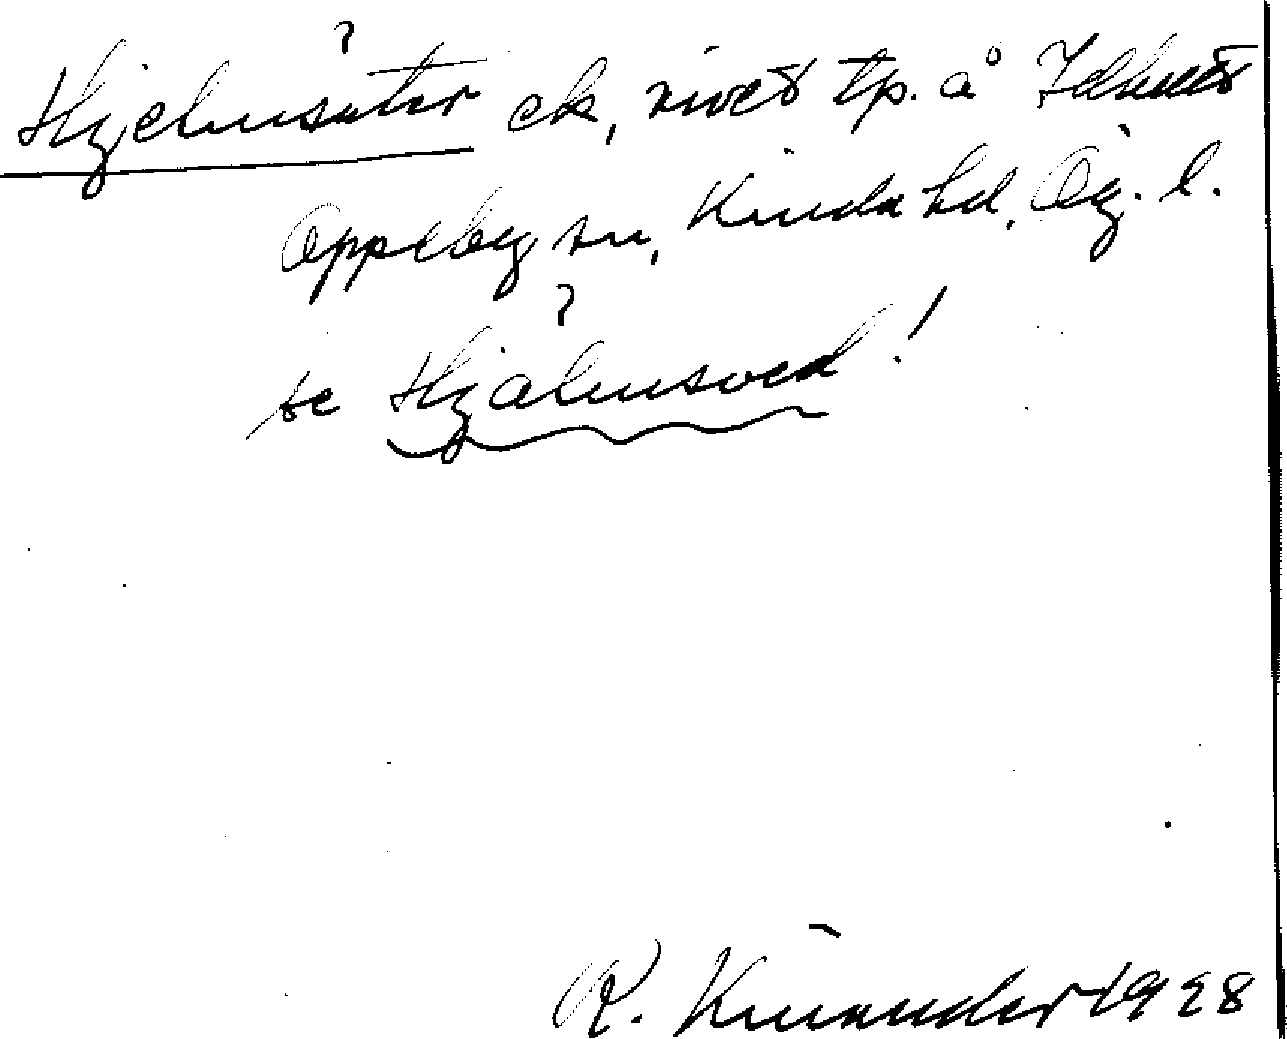 ?
Hjelmsäter ek, rivet tp. å
Oppeby sn, Kinda hd, Ög. l.
?
se Hjälmsved!
R. Kinander 1928